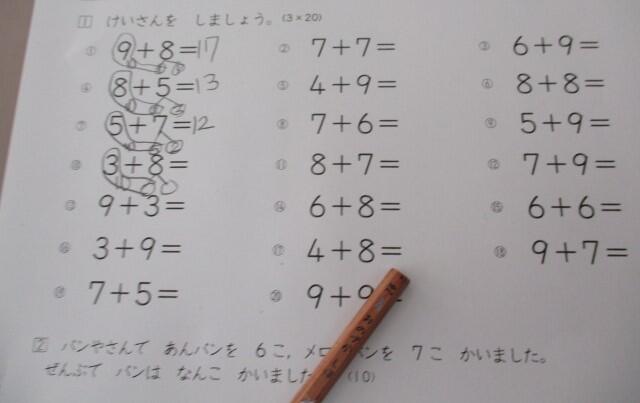 1 けいさんを しましょう。(3×20)
① 9+8=17 ② 7+7= ③ 6+9=
④ 8+5=13 ⑤ 4+9= ⑥ 8+8=
⑦ 5+7=12 ⑧ 7+6= ⑨ 5+9=
⑩ 3+8= ⑪ 8+7= ⑫ 7+9=
⑬ 9+3= ⑭ 6+8= ⑮ 6+6=
⑯ 3+9= ⑰ 4+8= ⑱ 9+7=
⑲ 7+5= ⑳ 9+9=
2 パンやさんで あんパンを 6こ, メロンパンを 7こ かいました。
ぜんぶで パンは なんこ かいました (10)